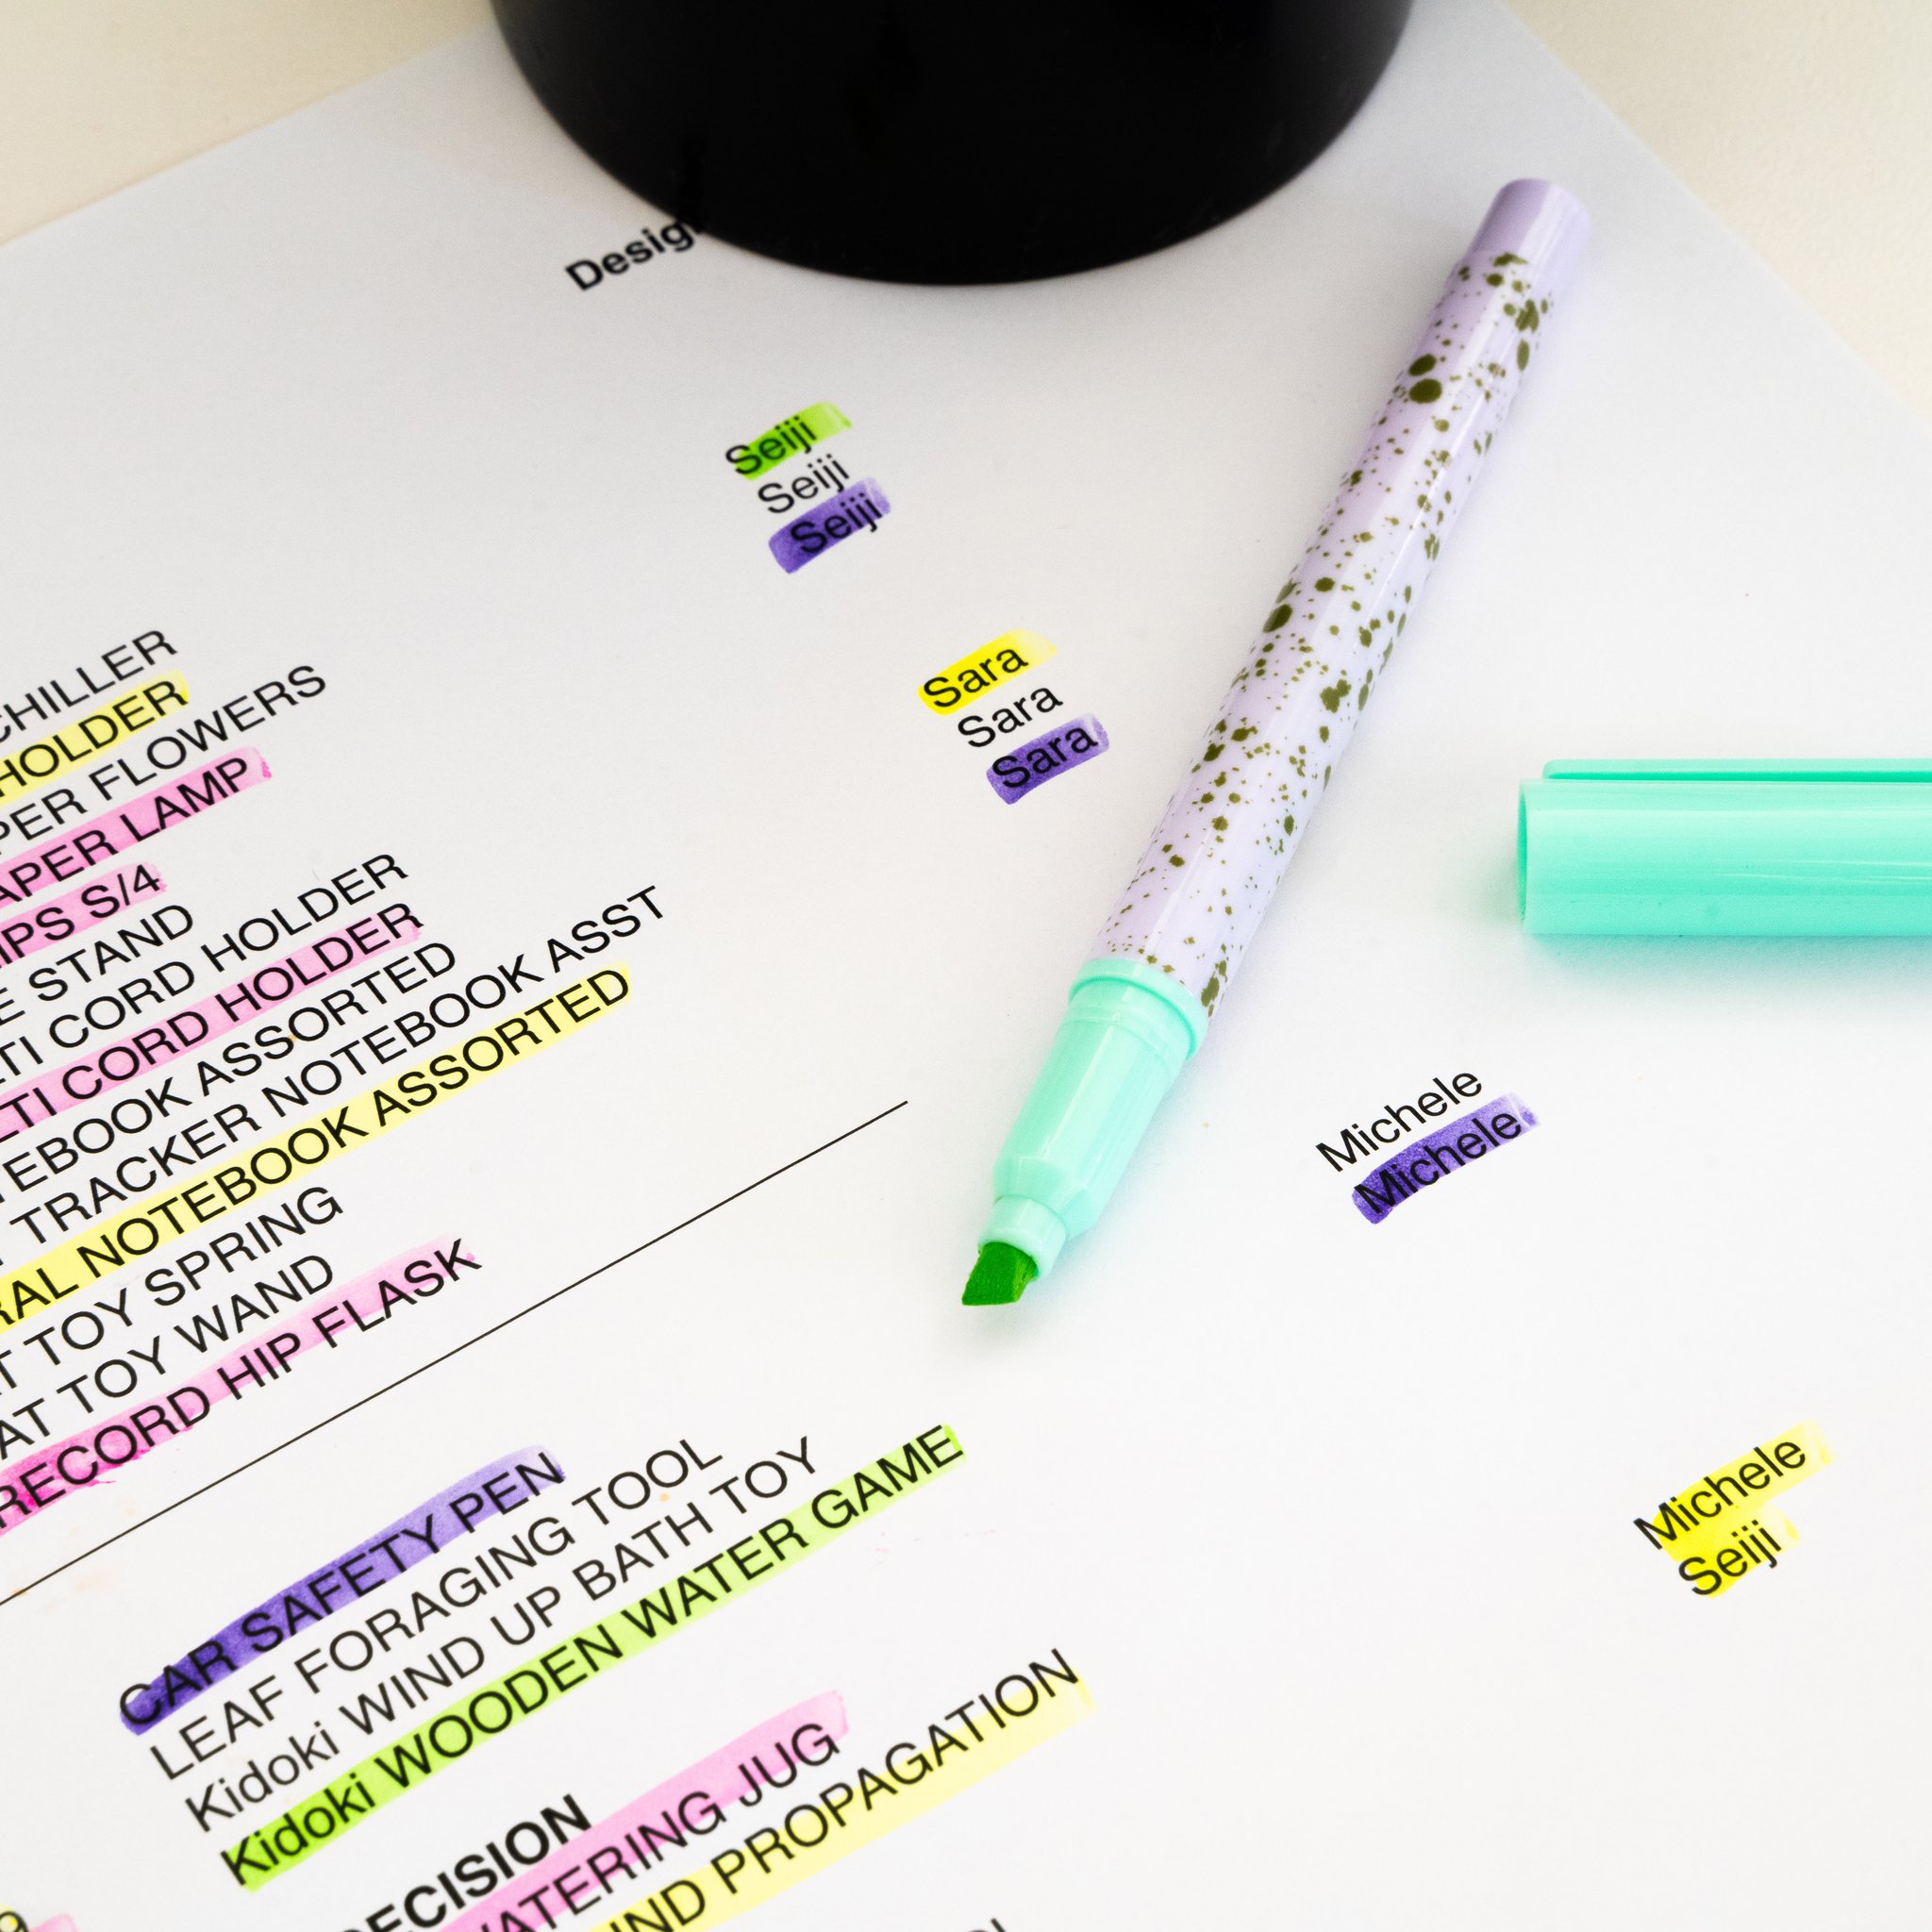 Desig
Seiji
Seiji
Seiji
Sara
Sara
Sara
Michele
Michele
Michele
Seiji
CHILLER
HOLDER
PER FLOWERS
APER LAMP
IPS S/4
E STAND
TI CORD HOLDER
LTI CORD HOLDER
TEBOOK ASSORTED
T TRACKER NOTEBOOK ASST
RAL NOTEBOOK ASSORTED
T TOY SPRING
AT TOY WAND
RECORD HIP FLASK
CAR SAFETY PEN
LEAF FORAGING TOOL
Kidoki WIND UP BATH TOY
Kidoki WOODEN WATER GAME
ECISION
WATERING JUG
IND PROPAGATION